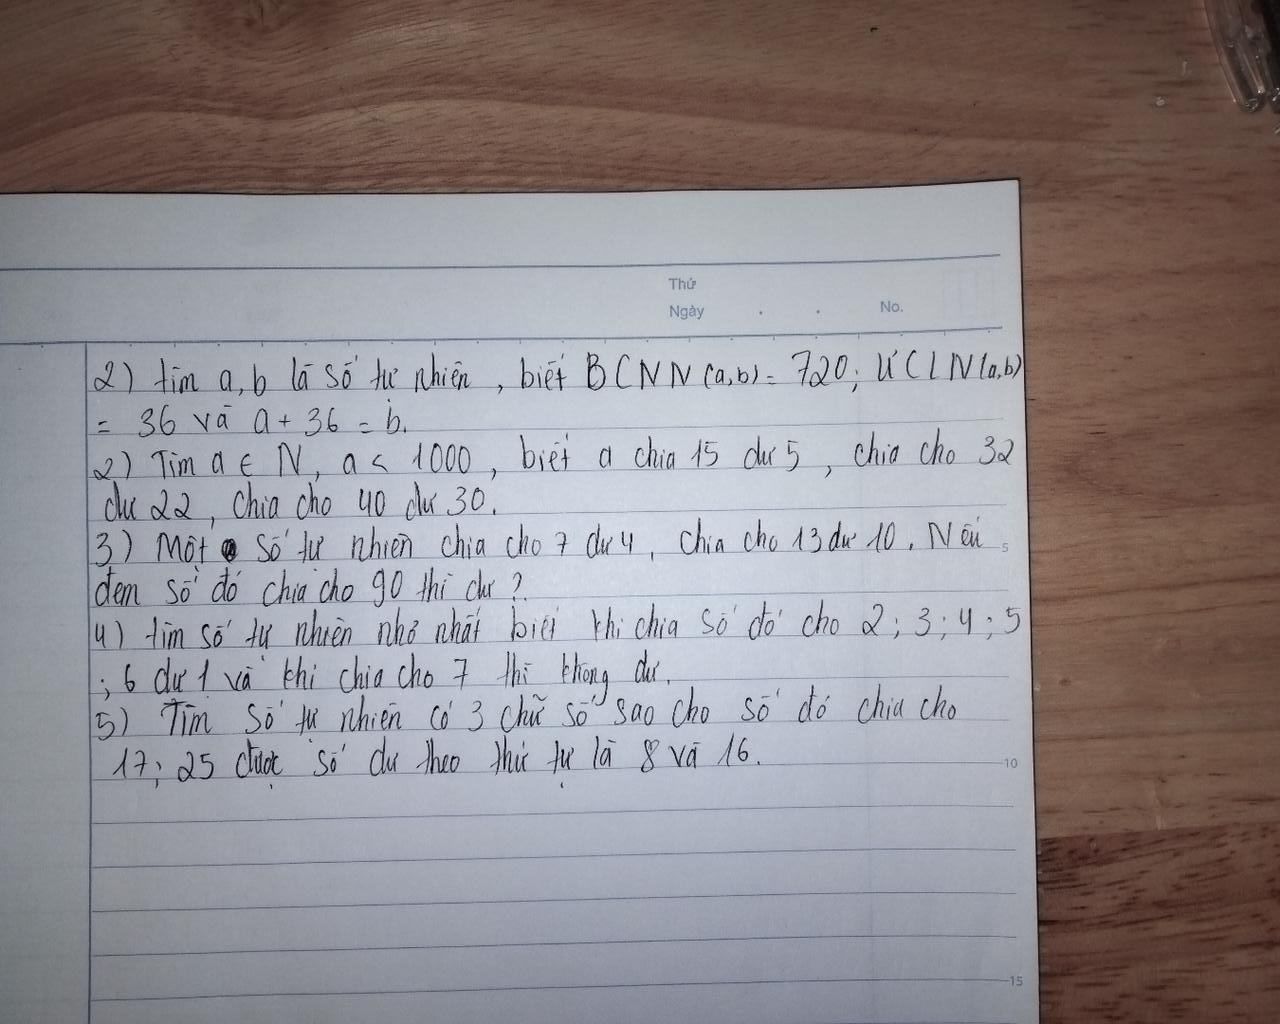 Thứ
Ngày . . No.
2) tìm a, b là số tự nhiên, biết BCNN (a,b) = 720; ƯCLN (a,b)
= 36 và a + 36 = b.
2) Tìm a ∈ N, a < 1000, biết a chia 15 dư 5, chia cho 32
dư 22, chia cho 40 dư 30.
3) Một số tự nhiên chia cho 7 dư 4, chia cho 13 dư 10. Nếu
5
đem số đó chia cho 90 thì dư ?
4) tìm số tự nhiên nhỏ nhất biết khi chia số đó cho 2; 3; 4; 5
; 6 dư 1 và khi chia cho 7 thì không dư.
5) Tìm số tự nhiên có 3 chữ số sao cho số đó chia cho
17; 25 được số dư theo thứ tự là 8 và 16.
10
15